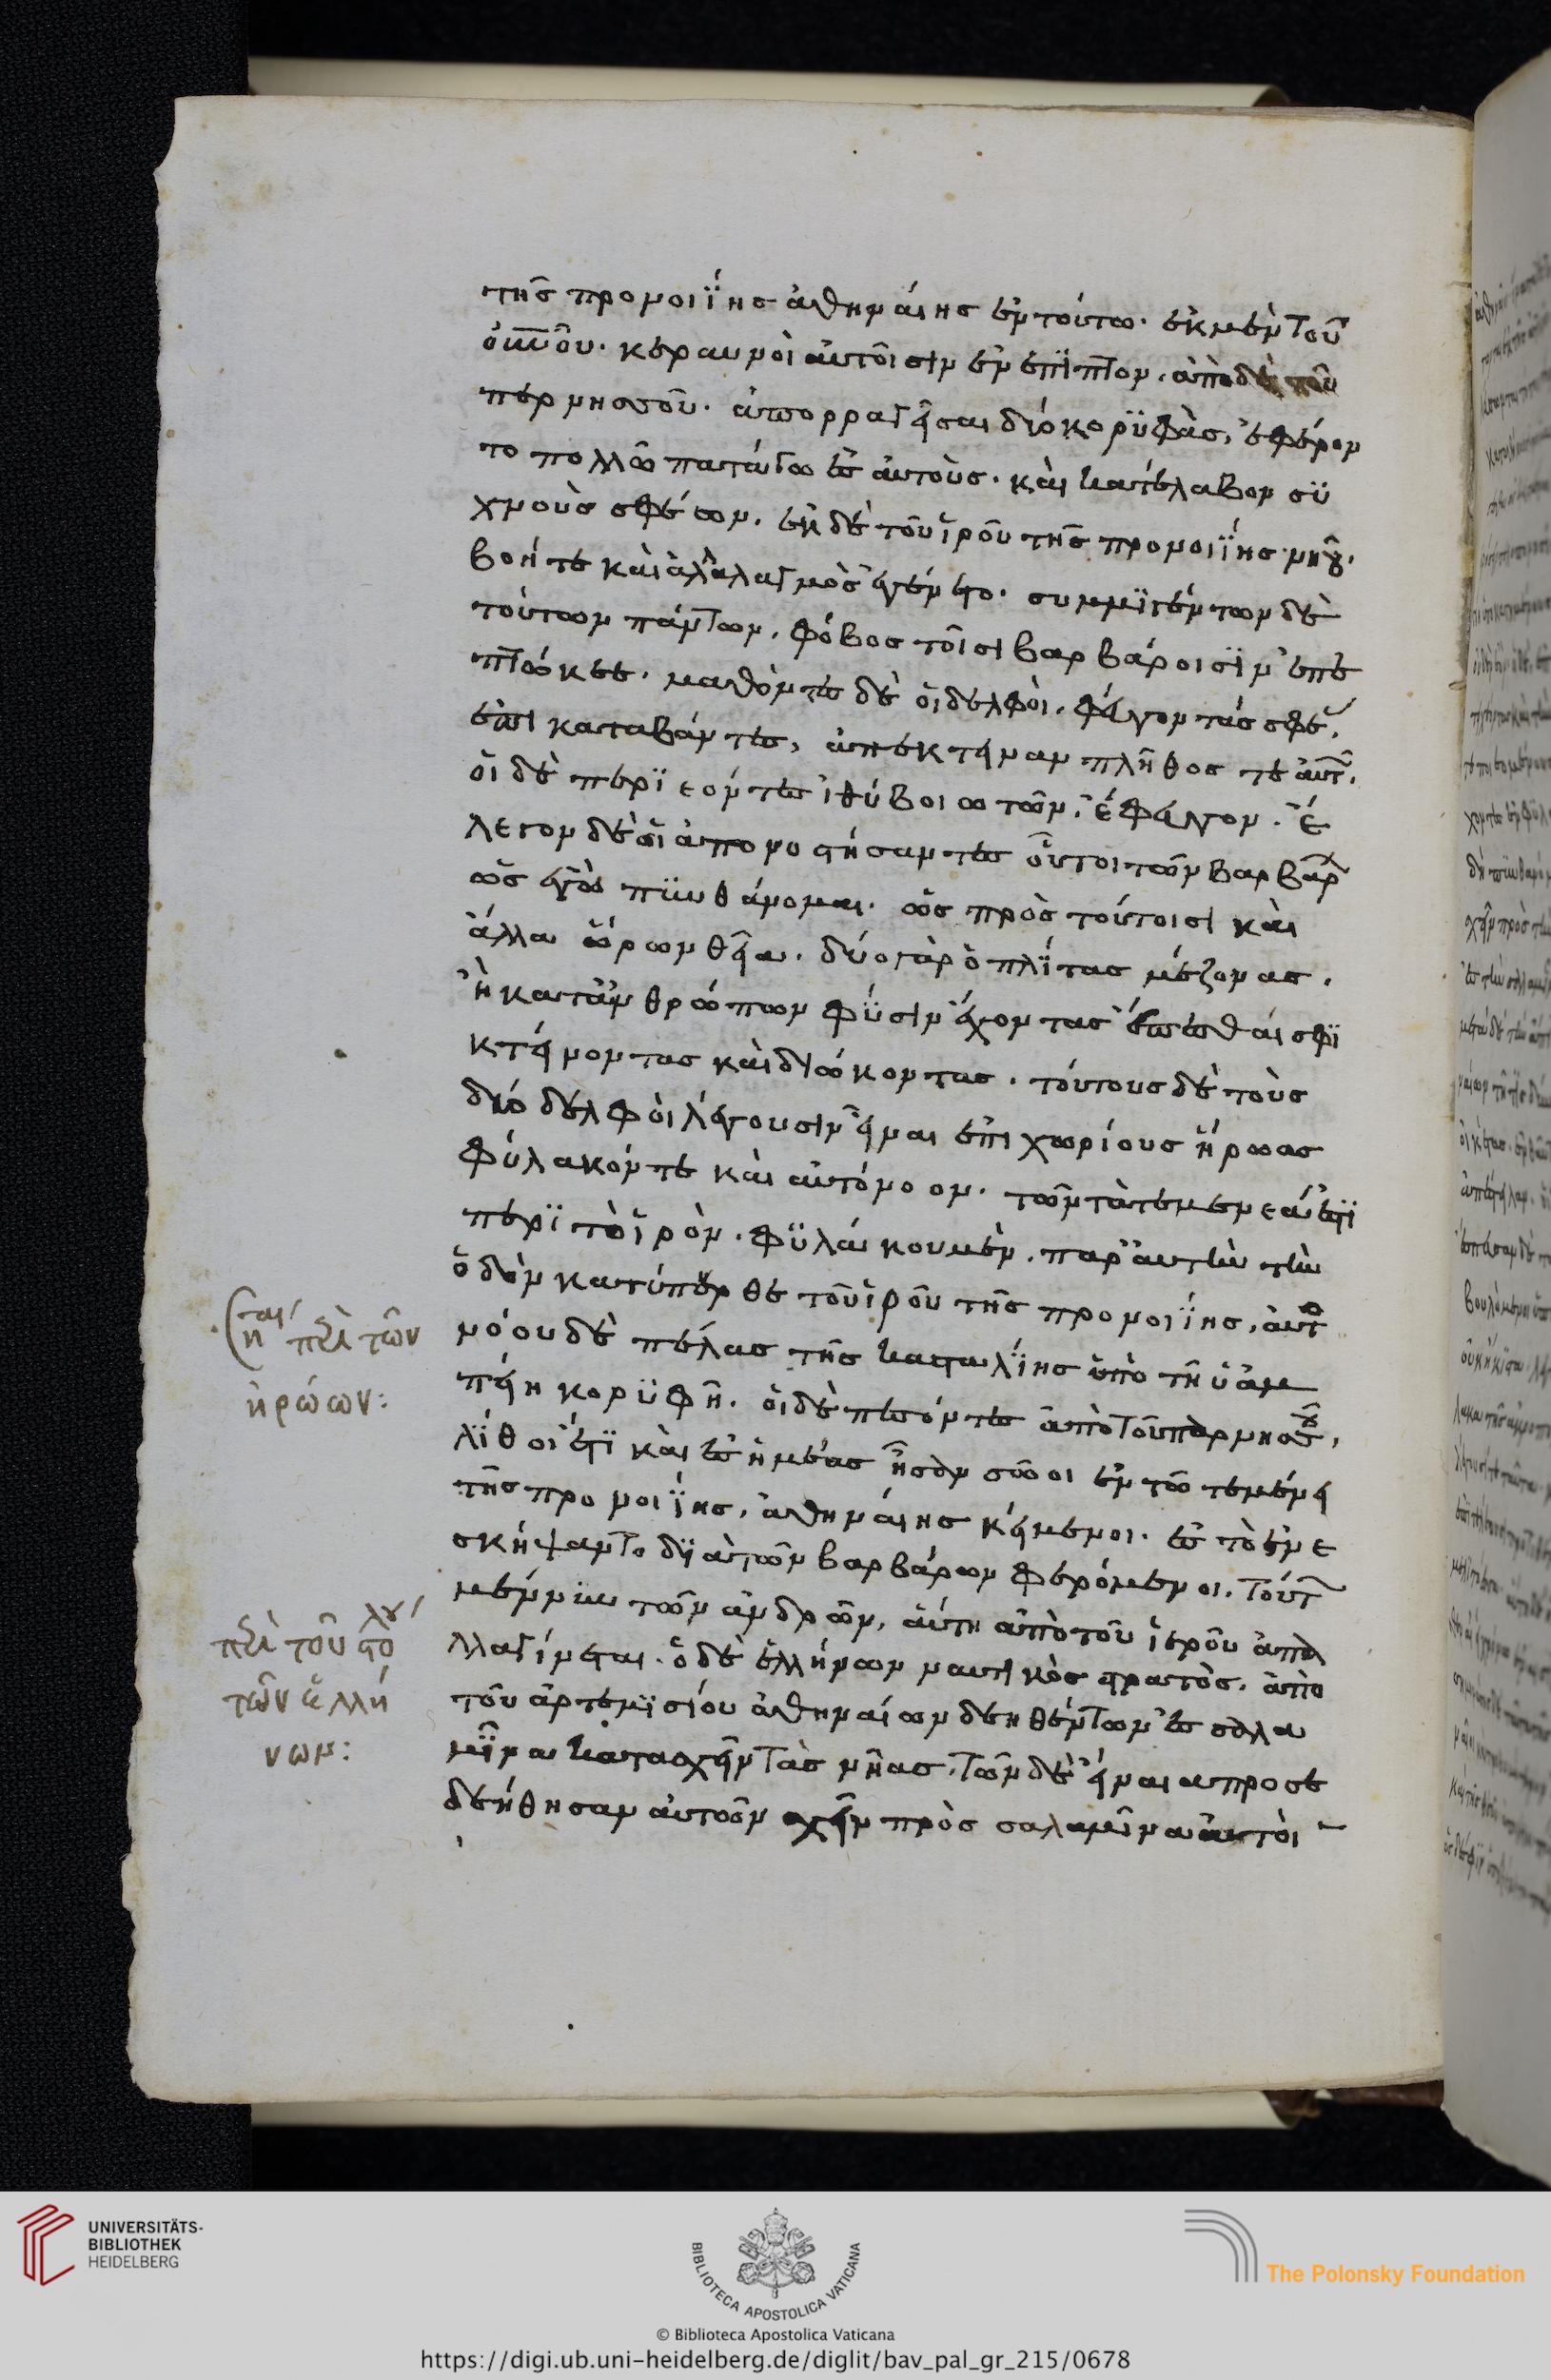 της προνοιΐης ἀθηναίης ἐν τούτω· ἐκ μὲν τοῦ
οὐνοῦ· κεραυνοὶ αὐτοῖσιν ἐνεπϊπτον. ἀπὸ δὲ τοῦ
περνησσοῦ. ἀπορραγεῖσαι δύο κορϋφὰς, ἐφέρον
το πολλῶ πατάγω ἐς αὐτοὺς. καὶ κατέλαβον σϋ
χνοὺς σφέων. ἐκ δὲ τοῦ ἱροῦ τῆς προνοιΐης νηοῦ.
βοή τε καὶ ἀλαλαγμὸς ἐγένετο. συμμϊγέντων δὲ
τούτων πάντων. φόβος τοῖσι βαρβάροισϊν ἐπε
πτώκεε. μαθόντες δὲ οἱ δελφοὶ. φεύγοντάς σφε.
ἐπι καταβάντες, ἀπέκτειναν πλῆθος τι αὐτ.
οἱ δὲ περϊεόντες ἰθὺ βοιωτῶν. ἔφευγον. ἔ
λεγον δὲ οἱ ἀπονοστήσαντες οὗτοι τῶν βαρβάρ
ὡς ἐγὼ πϋνθάνομαι. ὡς πρὸς τούτοισι καὶ
ἄλλα ὥρων θεῖα. δύο γὰρ ὁπλίτας μέζονας.
ἢ κατ' ἀνθρώπων φϋσιν ἔχοντας ἕπεσθαί σφϊ
κτείνοντας καὶ διώκοντας. τούτους δὲ τοὺς
δύο δελφοὶ λέγουσιν εἶναι ἐπιχωρίους ἥρωας
φύλακόν τε καὶ αὐτόνοον. τῶν τὰ τεμένεά ἐστϊ
περϊ τὸ ἱρὸν. φϋλάκου μὲν. παρ' αὐτὴν τὴν
ὁδὸν κατύπερθε τοῦ ἱροῦ τῆς προνοιΐης, αὐτ
νόου δὲ πέλας τῆς κασταλΐης ὑπὸ τῆ ὑαμ
πείη κορϋφῆ. οἱ δὲ πεσόντες ἀπὸ τοῦ παρνησοῦ,
λΐθοι ἔτϊ καὶ ἐς ἡμέας ἦσαν σῶοι ἐν τῶ τεμένει
τῆς προνοιΐης, ἀθηναίης κείμενοι. ἐς τὸ ἐνε
σκήψαντο δϊὰ τῶν βαρβάρων φερόμενοι. τούτ
μέν νυν τῶν ἀνδρῶν, αὕτη ἀπὸ τοῦ ἱεροῦ ἀπαλ
λαγὴ γίνεται. ὁ δὲ ἑλλήνων ναυτικὸς στρατὸς. ἀπὸ
τοῦ ἀρτεμϊσίου ἀθηναίων δεηθέντων ἐς σαλα
μῖνα κατασχεῖν τὰς νῆας. τῶν δὲ εἵνεκα προσε
δεήθησαν αὐτῶν σχεῖν πρὸς σαλαμῖνα αὐτοὶ
ται
(η περὶ τῶν
ἡρώων:
περὶ τοῦ στόλου
τῶν ἑλλή
νων:
UNIVERSITÄTS-
BIBLIOTHEK
HEIDELBERG
BIBLIOTECA APOSTOLICA VATICANA
The Polonsky Foundation
© Biblioteca Apostolica Vaticana
https://digi.ub.uni-heidelberg.de/diglit/bav_pal_gr_215/0678